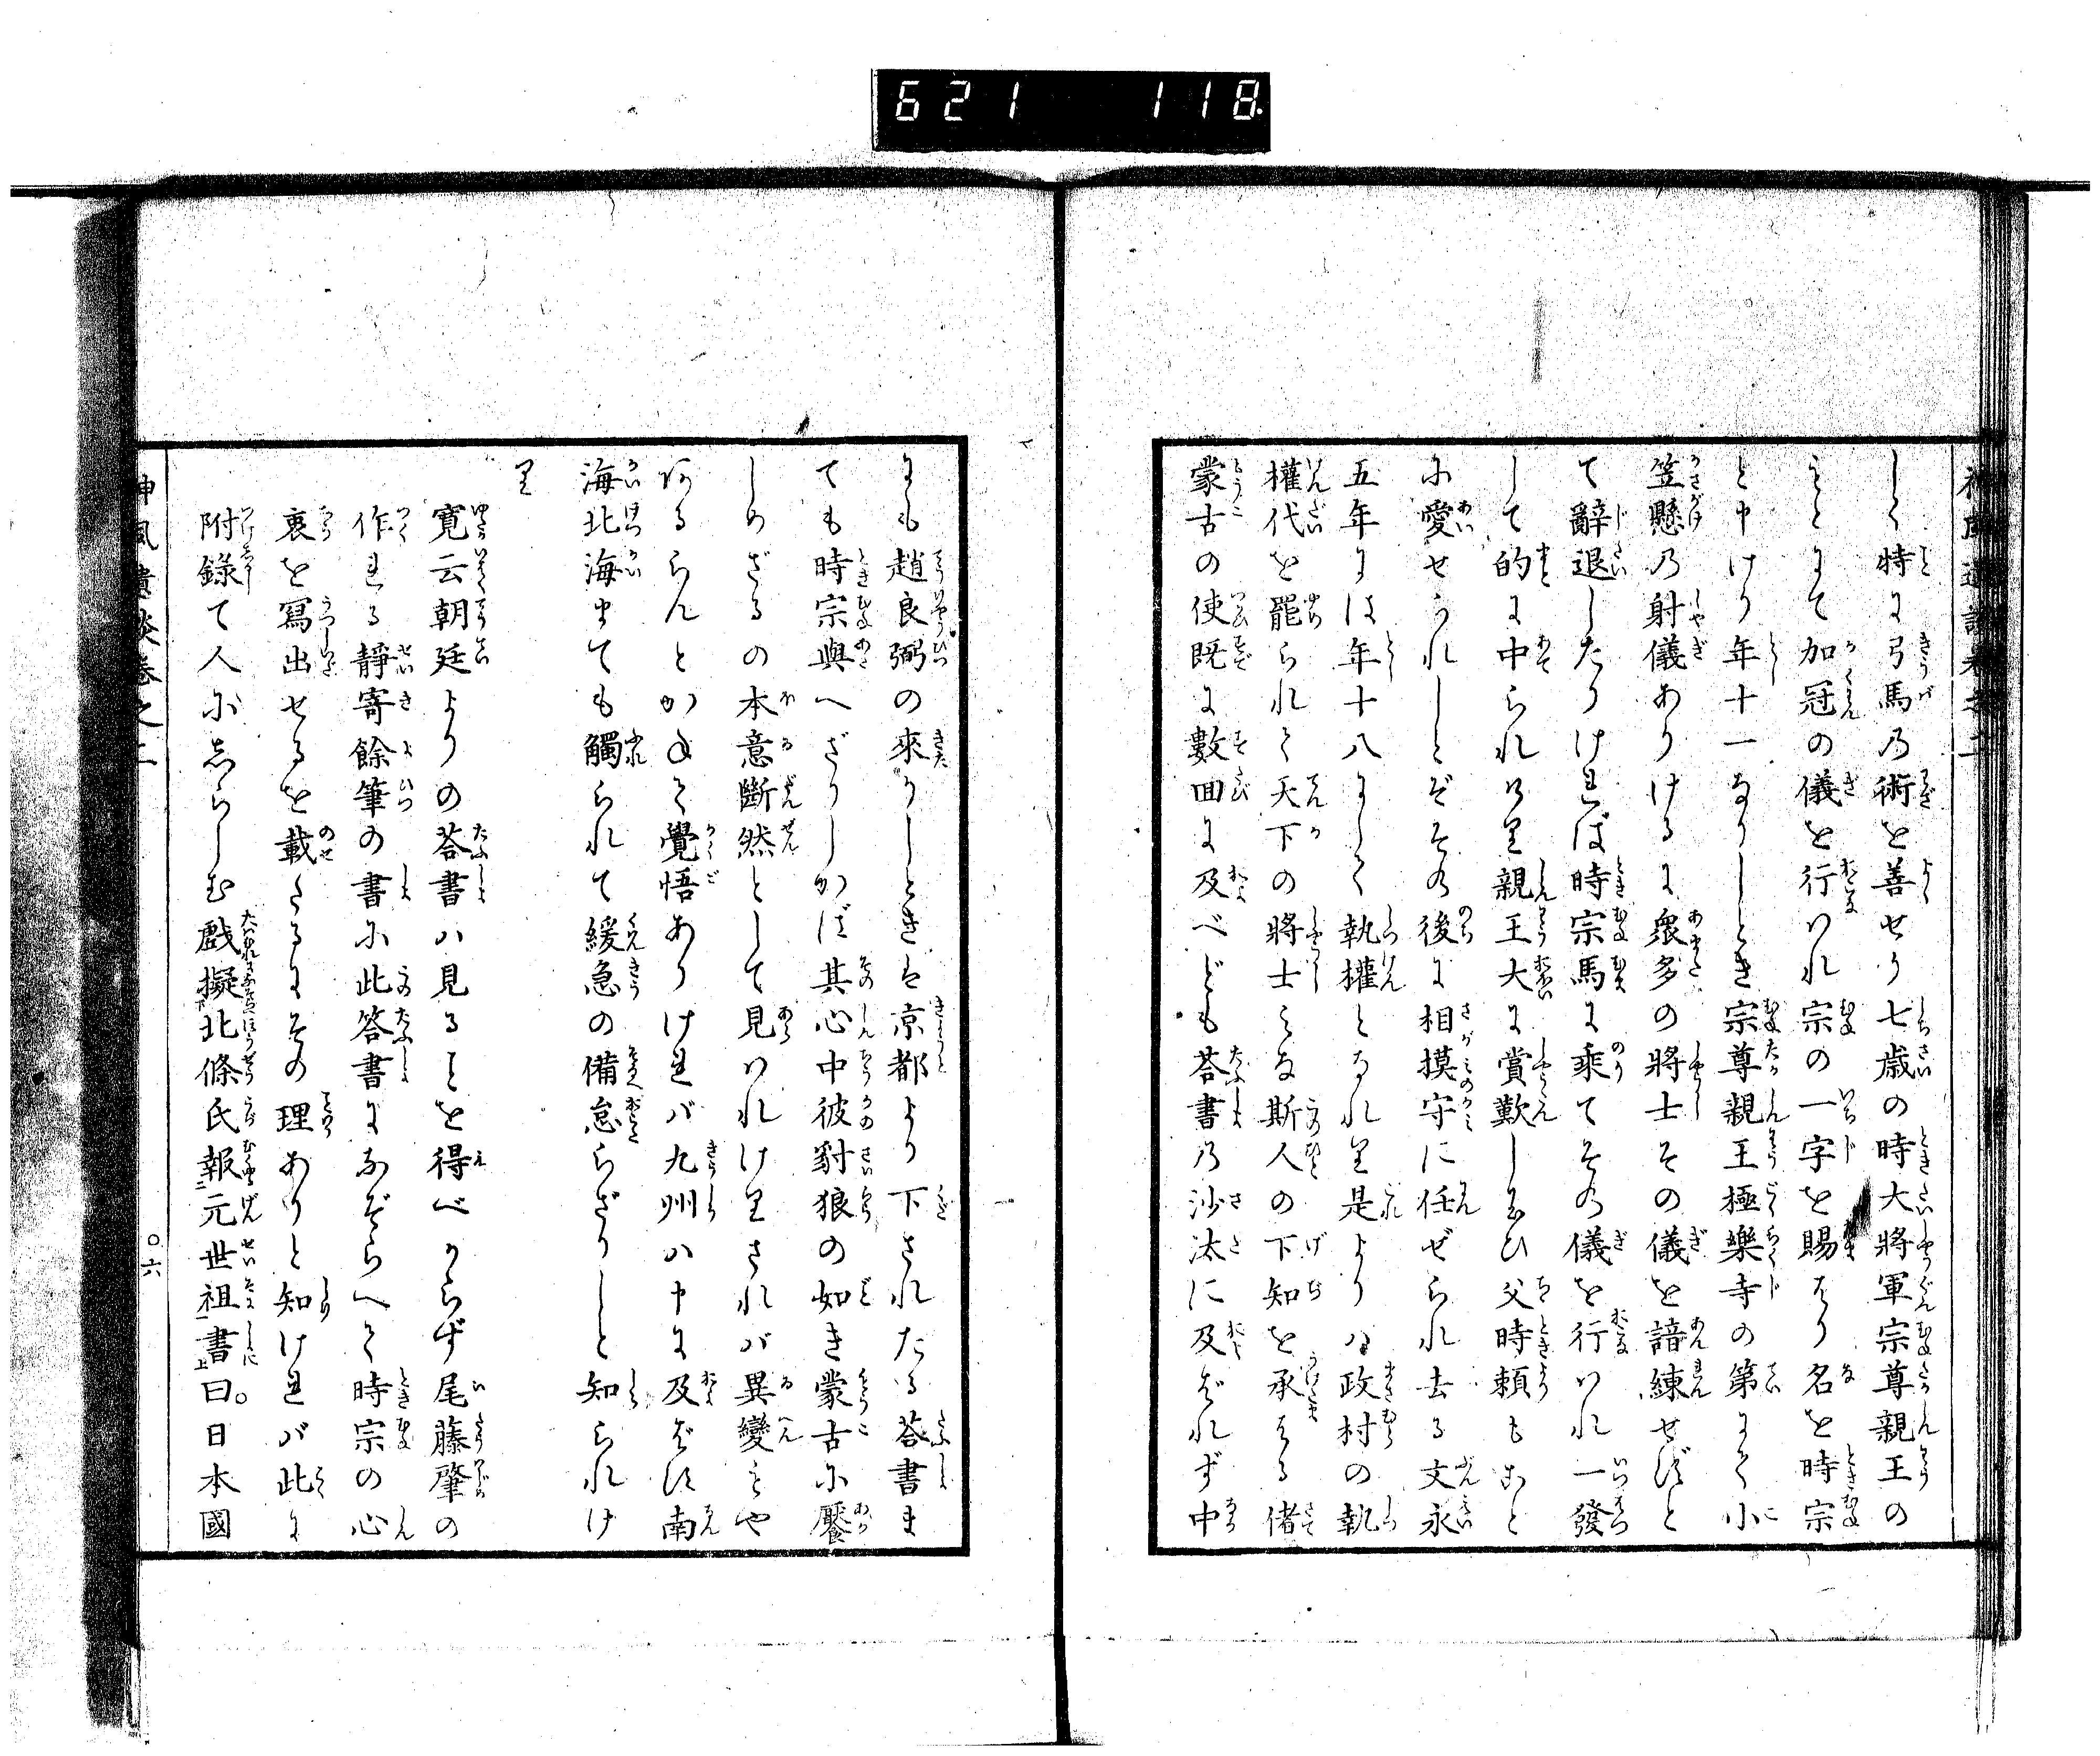 621 118
して特に弓馬乃術を善せり七歳の時大將軍宗尊親王の
もとにて加冠の儀を行ハれ宗の一字を賜ハり名を時宗
と申けり年十一なりしとき宗尊親王極樂寺の第にて小
笠懸乃射儀ありけるに衆多の將士その儀を諳練せずと
て辭退したりけれバ時宗馬に乘てその儀を行ハれ一發
して的に中られけり親王大に賞歎し玉ひ父時頼もこと
に愛せられしとぞその後に相摸守に任ぜられ去る文永
五年には年十八にして執權となれり是よりハ政村の執
權代を罷られて天下の將士みな斯人の下知を承ける偖
蒙古の使既に數回に及べども荅書乃沙汰に及バれず中
にも趙良弼の來りしときは京都より下されたる荅書ま
ても時宗與へざりしかバ其心中彼豺狼の如き蒙古に饜
しめざるの本意斷然として見ハれけりされバ異變もや
あるらんとかねて覺悟ありけれバ九州ハ申に及バず南
海北海までも觸られて緩急の備怠らざりしと知られけ
り
寛云朝廷よりの荅書ハ見ることを得べからず尾藤肇の
作れる靜寄餘筆の書に此答書になぞらへて時宗の心
裏を寫出せるを載たるにその理ありと知けれバ此に
附錄て人にしらしむ戲擬北條氏報元世祖書曰。日本國
神風遺談卷之二
〇六